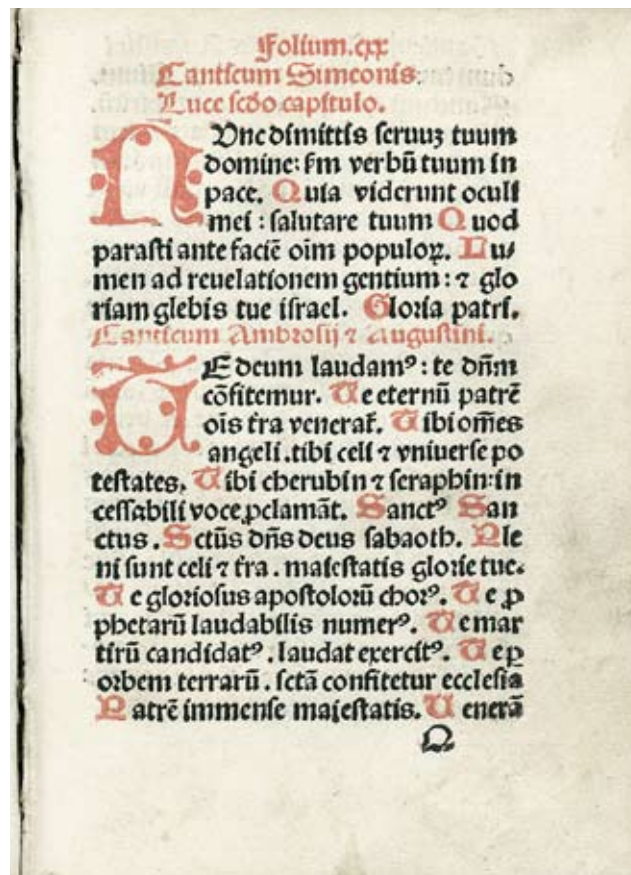 Folium.cxx
Canticum Simeonis.
Luce scďo capitulo.
NUnc dimittis seruuʒ tuum
domine: ẜm verbū tuum in
pace. Quia viderunt oculi
mei : salutare tuum Quod
parasti ante faciē oīm populoꝝ. Lu⸗
men ad reuelationem gentium : ⁊ glo
riam glebis tue israel. Gloria patri.
Canticum Ambrosij ⁊ Augustini.
TE deum laudamꝰ : te dn̄m
cōfitemur. Te eternū patrē
oīs t̄ra venerat̄. Tibi om̄es
angeli .tibi celi ⁊ vniuerse po
testates. Tibi cherubin ⁊ seraphin: in
cessabili voce ꝓclamāt. Sanctꝰ San
ctus . Sctūs dn̄s deus sabaoth. Ple
ni sunt celi ⁊ t̄ra . maiestatis glorie tue.
Te gloriosus apostolorū chorꝰ. Te ꝓ
phetarū laudabilis numerꝰ. Te mar
tirū candidatꝰ . laudat exercitꝰ. Te ꝑ
orbem terrarū . sctā confitetur ecclesia
Patrē immense maiestatis. Uenerā